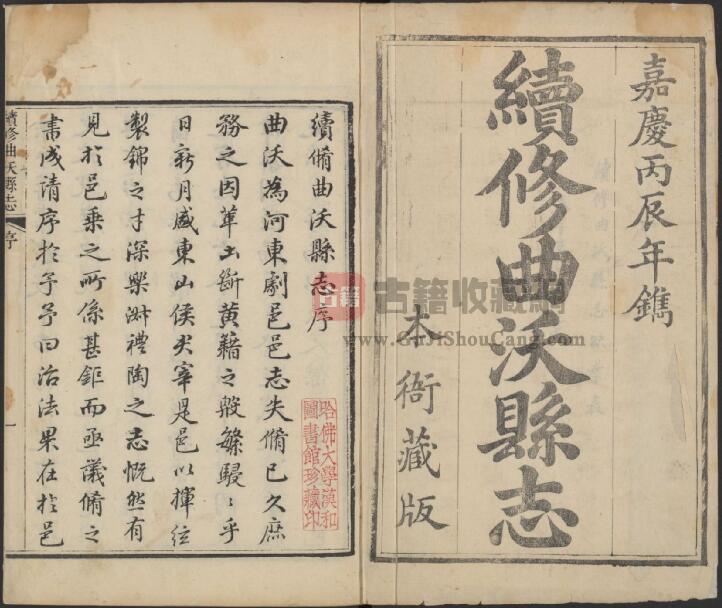 嘉慶丙辰年鐫
續修曲沃縣志
本衙藏版
續脩曲沃縣志序
曲沃為河東劇邑邑志失脩已久庶
務之因革土斷黄籍之殷繁駸〻乎
日新月盛東山侯君宰是邑以揮絃
製錦之才深樂淋禮陶之志慨然有
見於邑乘之所係甚鉅而亟議脩之
書成請序於予予曰治法果在於邑
續修曲沃縣志
序
一
哈佛大學漢和
圖書館珍藏印
古籍
古籍收藏網
www.GuJiShouCang.com